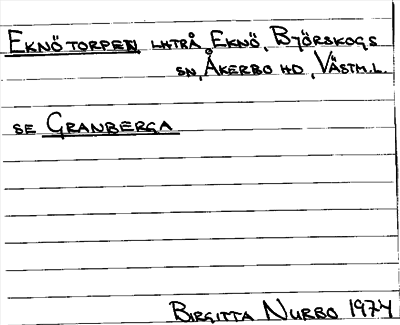 EKNÖTORPEN, LHTRÅ EKNÖ, BJÖRSKOGS
SN, ÅKERBO HD, VÄSTM.L.
SE GRANBERGA
BIRGITTA NURBO 1974